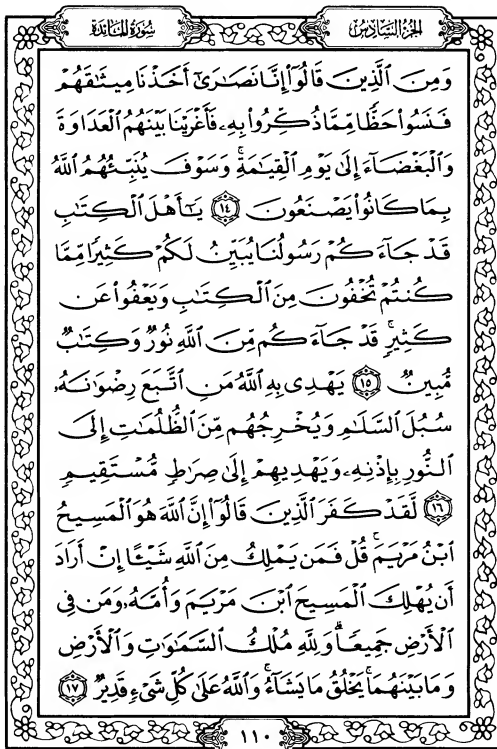 سُورَةُ المَائدة
الجزءُ السَّادِسُ
وَمِنَ ٱلَّذِينَ قَالُوٓا۟ إِنَّا نَصَٰرَىٰٓ أَخَذْنَا مِيثَٰقَهُمْ
فَنَسُوا۟ حَظًّا مِّمَّا ذُكِّرُوا۟ بِهِۦ فَأَغْرَيْنَا بَيْنَهُمُ ٱلْعَدَاوَةَ
وَٱلْبَغْضَآءَ إِلَىٰ يَوْمِ ٱلْقِيَٰمَةِ ۚ وَسَوْفَ يُنَبِّئُهُمُ ٱللَّهُ
بِمَا كَانُوا۟ يَصْنَعُونَ ١٤ يَٰٓأَهْلَ ٱلْكِتَٰبِ
قَدْ جَآءَكُمْ رَسُولُنَا يُبَيِّنُ لَكُمْ كَثِيرًا مِّمَّا
كُنتُمْ تُخْفُونَ مِنَ ٱلْكِتَٰبِ وَيَعْفُوا۟ عَن
كَثِيرٍ ۚ قَدْ جَآءَكُم مِّنَ ٱللَّهِ نُورٌ وَكِتَٰبٌ
مُّبِينٌ ١٥ يَهْدِى بِهِ ٱللَّهُ مَنِ ٱتَّبَعَ رِضْوَٰنَهُۥ
سُبُلَ ٱلسَّلَٰمِ وَيُخْرِجُهُم مِّنَ ٱلظُّلُمَٰتِ إِلَى
ٱلنُّورِ بِإِذْنِهِۦ وَيَهْدِيهِمْ إِلَىٰ صِرَٰطٍ مُّسْتَقِيمٍ
١٦ لَّقَدْ كَفَرَ ٱلَّذِينَ قَالُوٓا۟ إِنَّ ٱللَّهَ هُوَ ٱلْمَسِيحُ
ٱبْنُ مَرْيَمَ ۚ قُلْ فَمَن يَمْلِكُ مِنَ ٱللَّهِ شَيْـًٔا إِنْ أَرَادَ
أَن يُهْلِكَ ٱلْمَسِيحَ ٱبْنَ مَرْيَمَ وَأُمَّهُۥ وَمَن فِى
ٱلْأَرْضِ جَمِيعًا ۗ وَلِلَّهِ مُلْكُ ٱلسَّمَٰوَٰتِ وَٱلْأَرْضِ
وَمَا بَيْنَهُمَا ۚ يَخْلُقُ مَا يَشَآءُ ۚ وَٱللَّهُ عَلَىٰ كُلِّ شَىْءٍ قَدِيرٌ ١٧
١١٠